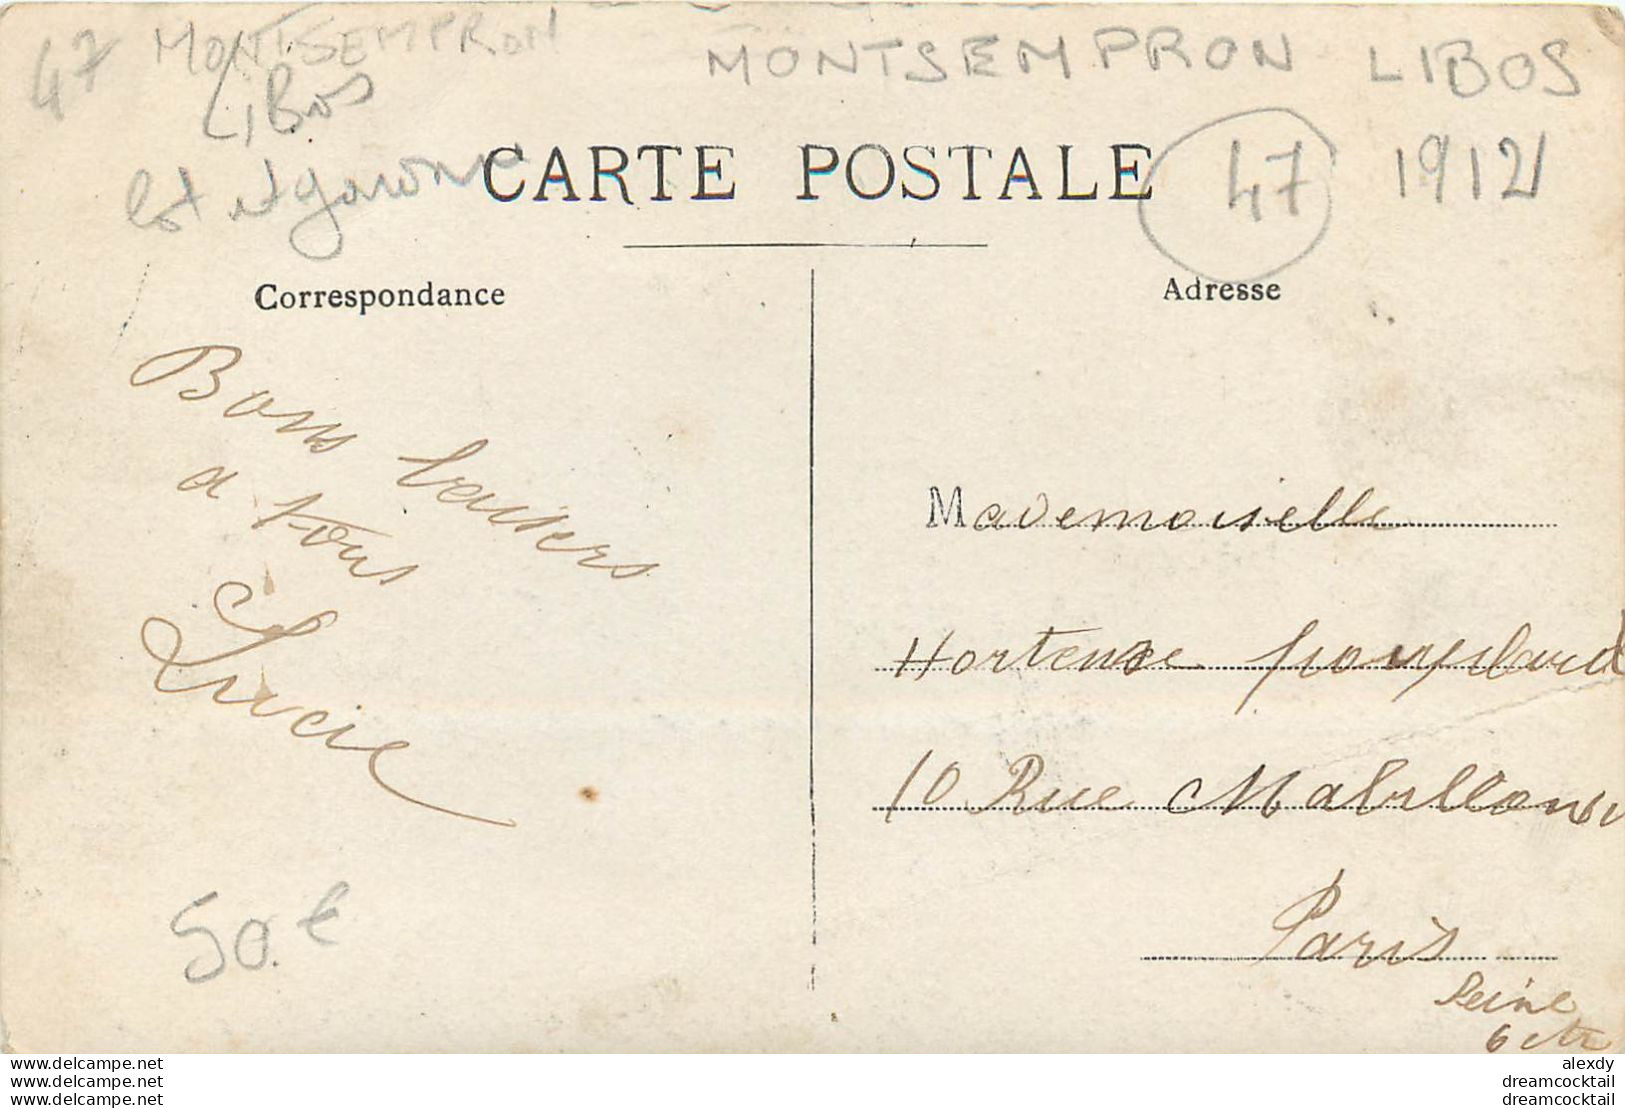 47 MONTSEMPRON
LIBOS
Lot et garonne
MONTSEMPRON LIBOS
47 1912
CARTE POSTALE
Correspondance
Adresse
Bons baisers
a tous
Lucie
50 €
Mademoiselle
Hortense
10 Rue Mabillon
Paris
Seine
6
www.delcampe.net
www.delcampe.net
www.delcampe.net
alexdy
dreamcocktail
dreamcocktail